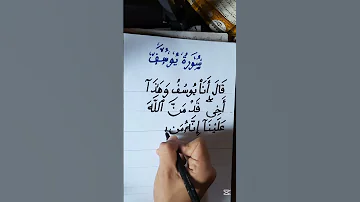 سُورَةُ يُوسُفَ
قَالَ أَنَا۠ يُوسُفُ وَهَٰذَآ
أَخِىۖ قَدْ مَنَّ ٱللَّهُ
عَلَيْنَآ إِنَّهُۥ مَن